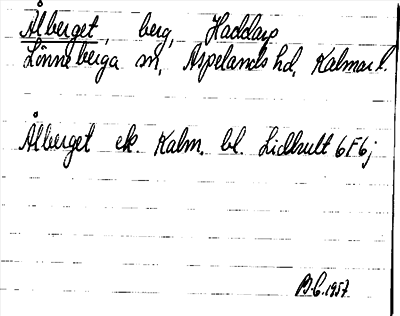 Ålberget, berg, Haddarp
Lönneberga sn, Aspelands hd, Kalmar l.
Ålberget ek Kalm. bl. Lidhult 6F6j
B.C. 1957